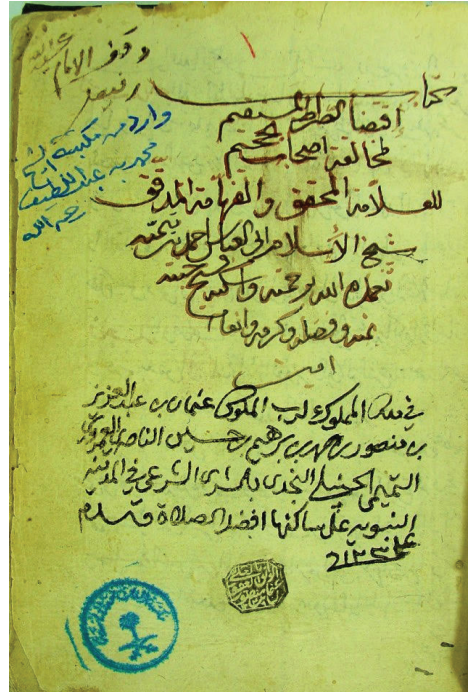 وقف الامام
وارد من مكتبة الشيخ
محمد بن عبد اللطيف
رحمه الله
كتاب
اقتضا الصراط المستقيم
لمخالفة اصحاب الجحيم
للعلامة المحقق والفهامة المدقق
شيخ الاسلام ابي العباس احمد بن تيمية
تغمده الله برحمته واسكنه فسيح جنته
بمنه وفضله وكرمه
امين
في ملك المملوك لرب الملوك عثمان بن عبد العزيز
بن منصور بن حمد بن ابرهيم بن حسين الناصري العمروي
التميمي الحنبلي النجدي بالشرى الشرعي في المدينة
النبوية على ساكنها افضل الصلاة والسلام